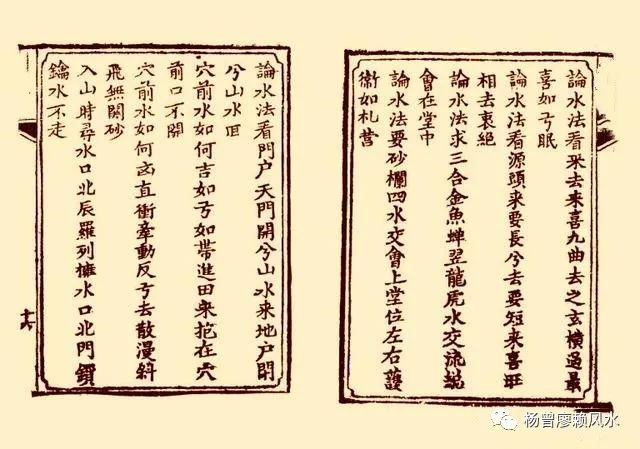 論水法看來去來喜九曲去之玄橫過最
喜如弓眠
論水法看源頭来要長兮去要短来喜旺
相去衰絕
論水法求三合金魚蟬翌龍虎水交流総
會在堂中
論水法要砂欄四水交會上堂位左右護
衛如札營
論水法看門户天門開兮山水来地户閉
兮山水囬
穴前水如何吉如弓如帶進田来抱在穴
前口不開
穴前水如何凶直衝牽動反弓去散漫斜
飛無関砂
入山時尋水口北辰羅列擁水口北門鎖
鑰水不走
十六
杨曾廖赖风水